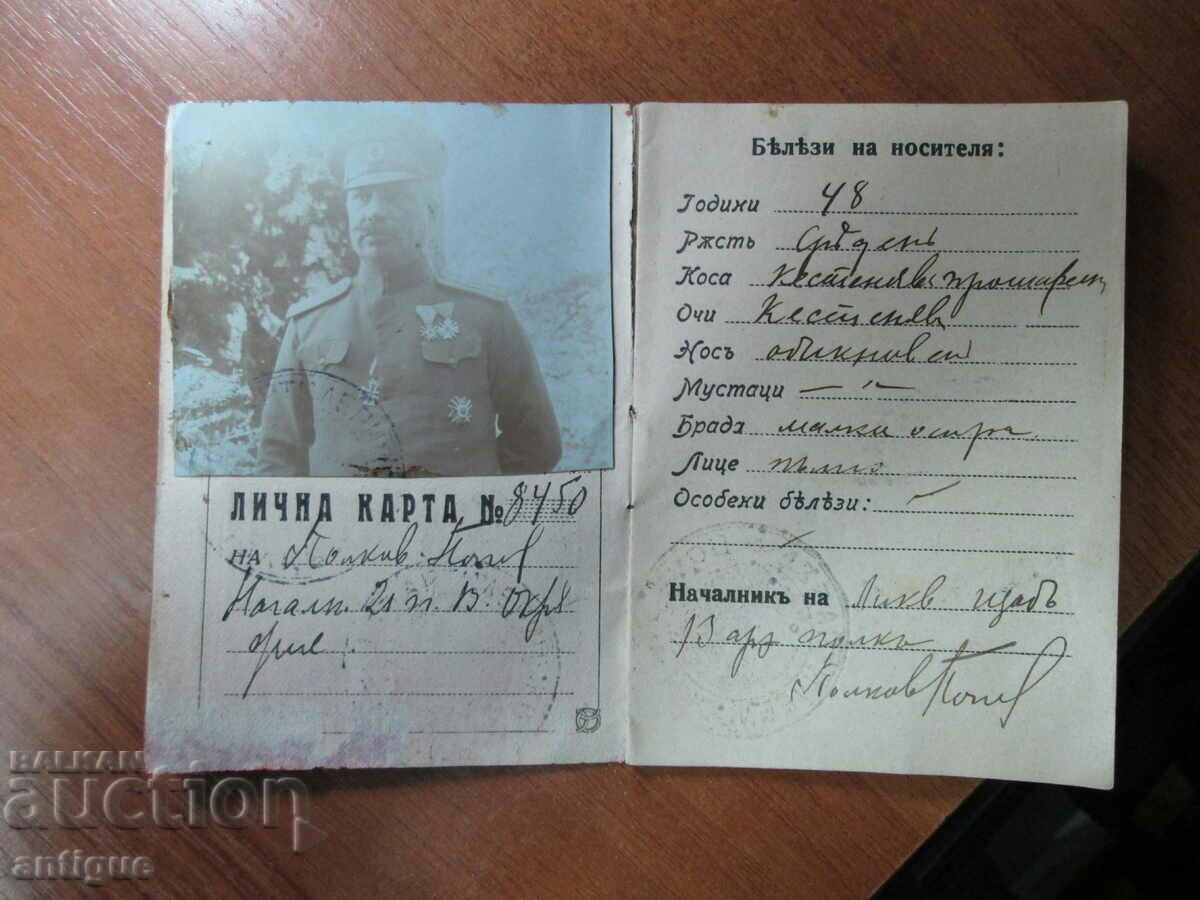 ЛИЧНА КАРТА №8450
на Полков. Почев
Началн. 21 п. В. окрѫ
жие
Бѣлѣзи на носителя:
Години 48
Рѫсть Срѣденъ
Коса Кестеняви прошарени
Очи Кестеняви
Носъ обикновен
Мустаци — " —
Брада малки остра
Лице пълно
Особени бѣлѣзи: —
Началникъ на Ликв щабъ
13 арт полкъ
Полков Почев
BALKAN
auction
antique